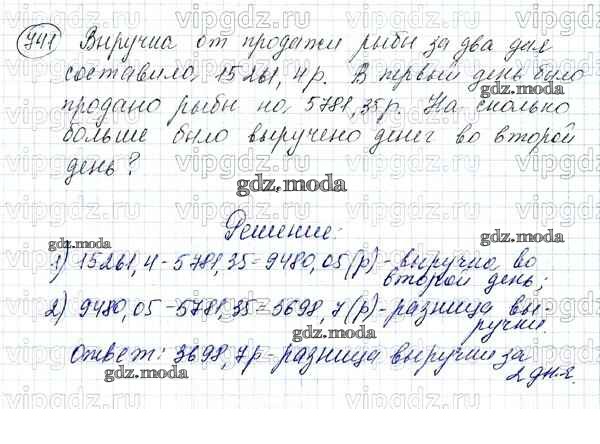 741 Выручка от продажи рыбы за два дня
составила 15261,4 р. В первый день было
продано рыбы на 5781,35 р. На сколько
больше было выручено денег во второй
день?
Решение:
1) 15261,4 - 5781,35 = 9480,05 (р) - выручка во
второй день;
2) 9480,05 - 5781,35 = 3698,7 (р) - разница вы-
ручки.
Ответ: 3698,7 р - разница выручки за
2 дня.